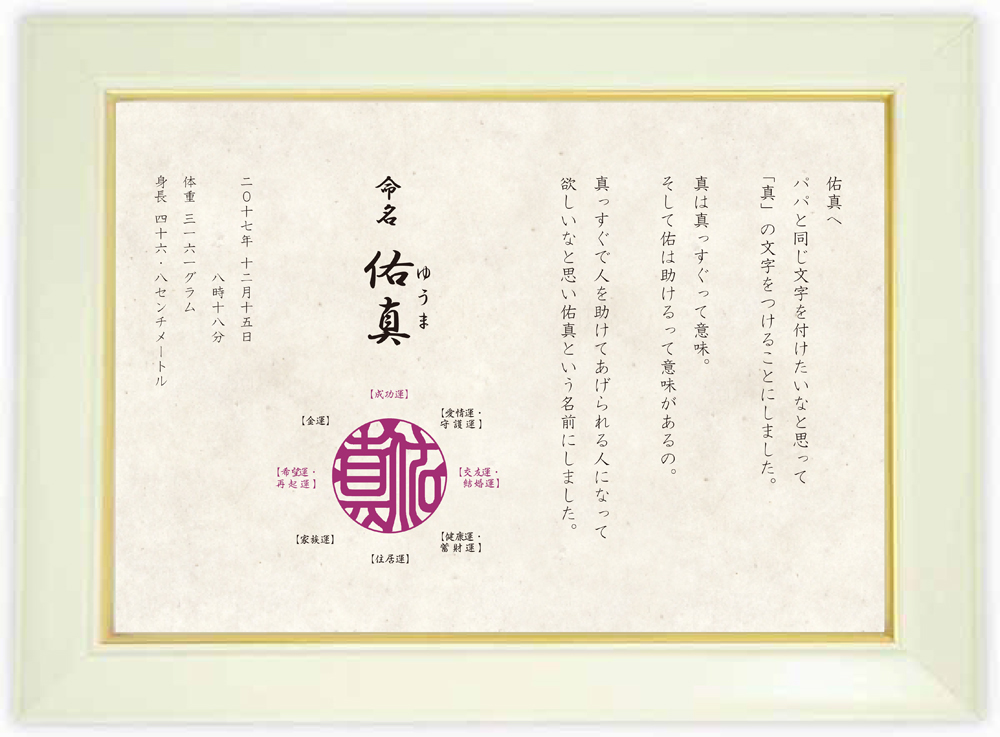 佑真へ
パパと同じ文字を付けたいなと思って
「真」の文字をつけることにしました。
真は真っすぐって意味。
そして佑は助けるって意味があるの。
真っすぐで人を助けてあげられる人になって
欲しいなと思い佑真という名前にしました。
命名 佑真
ゆうま
【成功運】
【愛情運・
守護運】
【交友運・
結婚運】
【健康運・
蓄財運】
【住居運】
【家族運】
【希望運・
再起運】
【金運】
佑真
二〇十七年 十二月十五日
八時十八分
体重 三一六一グラム
身長 四十六・八センチメートル